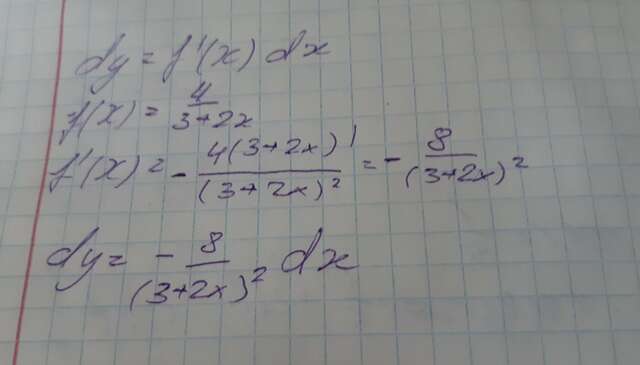 dy = f'(x) dx
f(x) = 4/(3+2x)
f'(x) = - 4(3+2x)'/(3+2x)² = - 8/(3+2x)²
dy = - 8/(3+2x)² dx